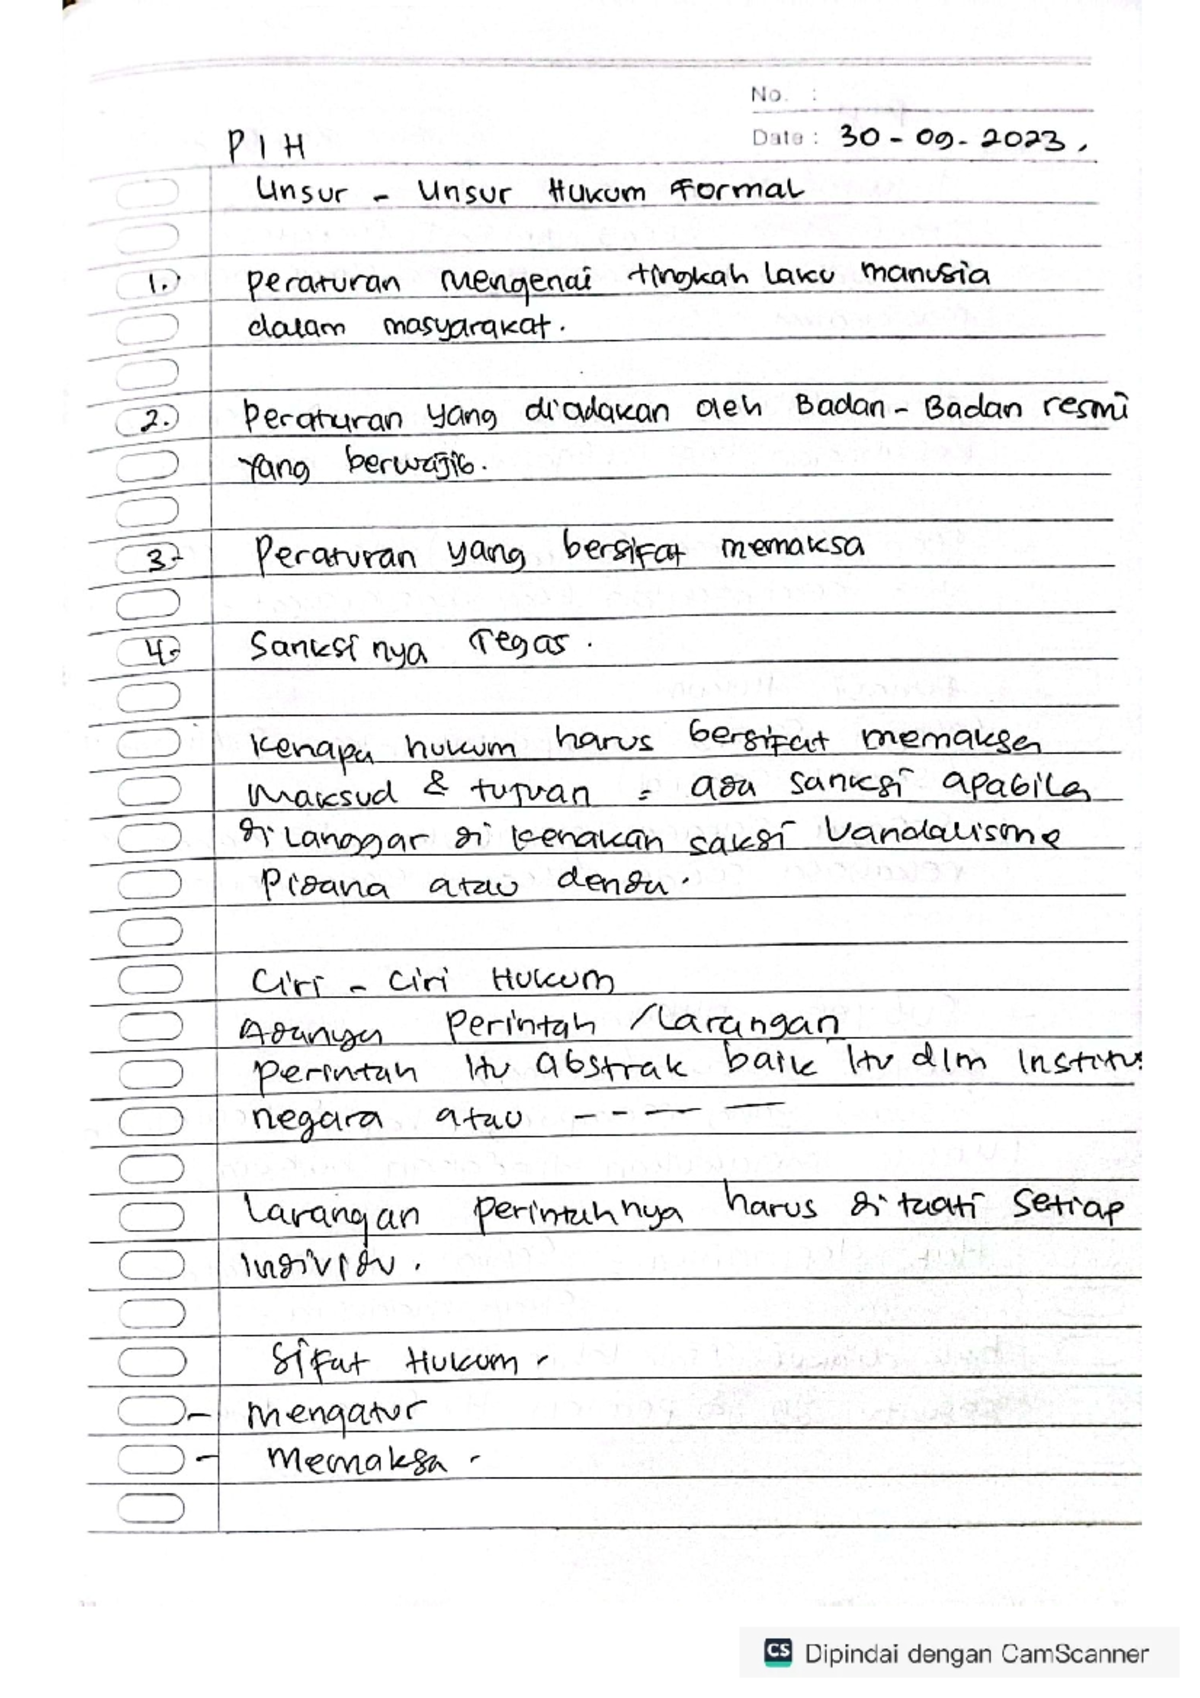 No. :
Date : 30 - 09 - 2023 .
P I H
Unsur - Unsur Hukum Formal
1. Peraturan mengenai tingkah laku manusia
dalam masyarakat.
2. Peraturan yang diadakan oleh Badan - Badan resmi
yang berwajib.
3. Peraturan yang bersifat memaksa
4. Sanksi nya Tegas .
Kenapa hukum harus bersifat memaksa
Maksud & tujuan = ada sanksi apabila
di langgar di kenakan saksi Vandalisme
Pidana atau denda.
Ciri - Ciri Hukum
Adanya Perintah / Larangan
perintah itu abstrak baik itu dlm Institusi
negara atau - - — — —
Larangan perintahnya harus di taati setiap
Individu .
Sifat Hukum -
- mengatur
- Memaksa -
CS Dipindai dengan CamScanner